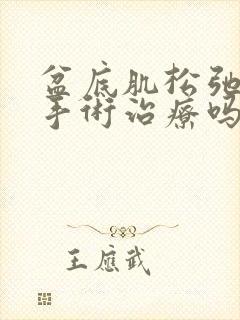 盆底肌松弛
手術治療吗
王應武